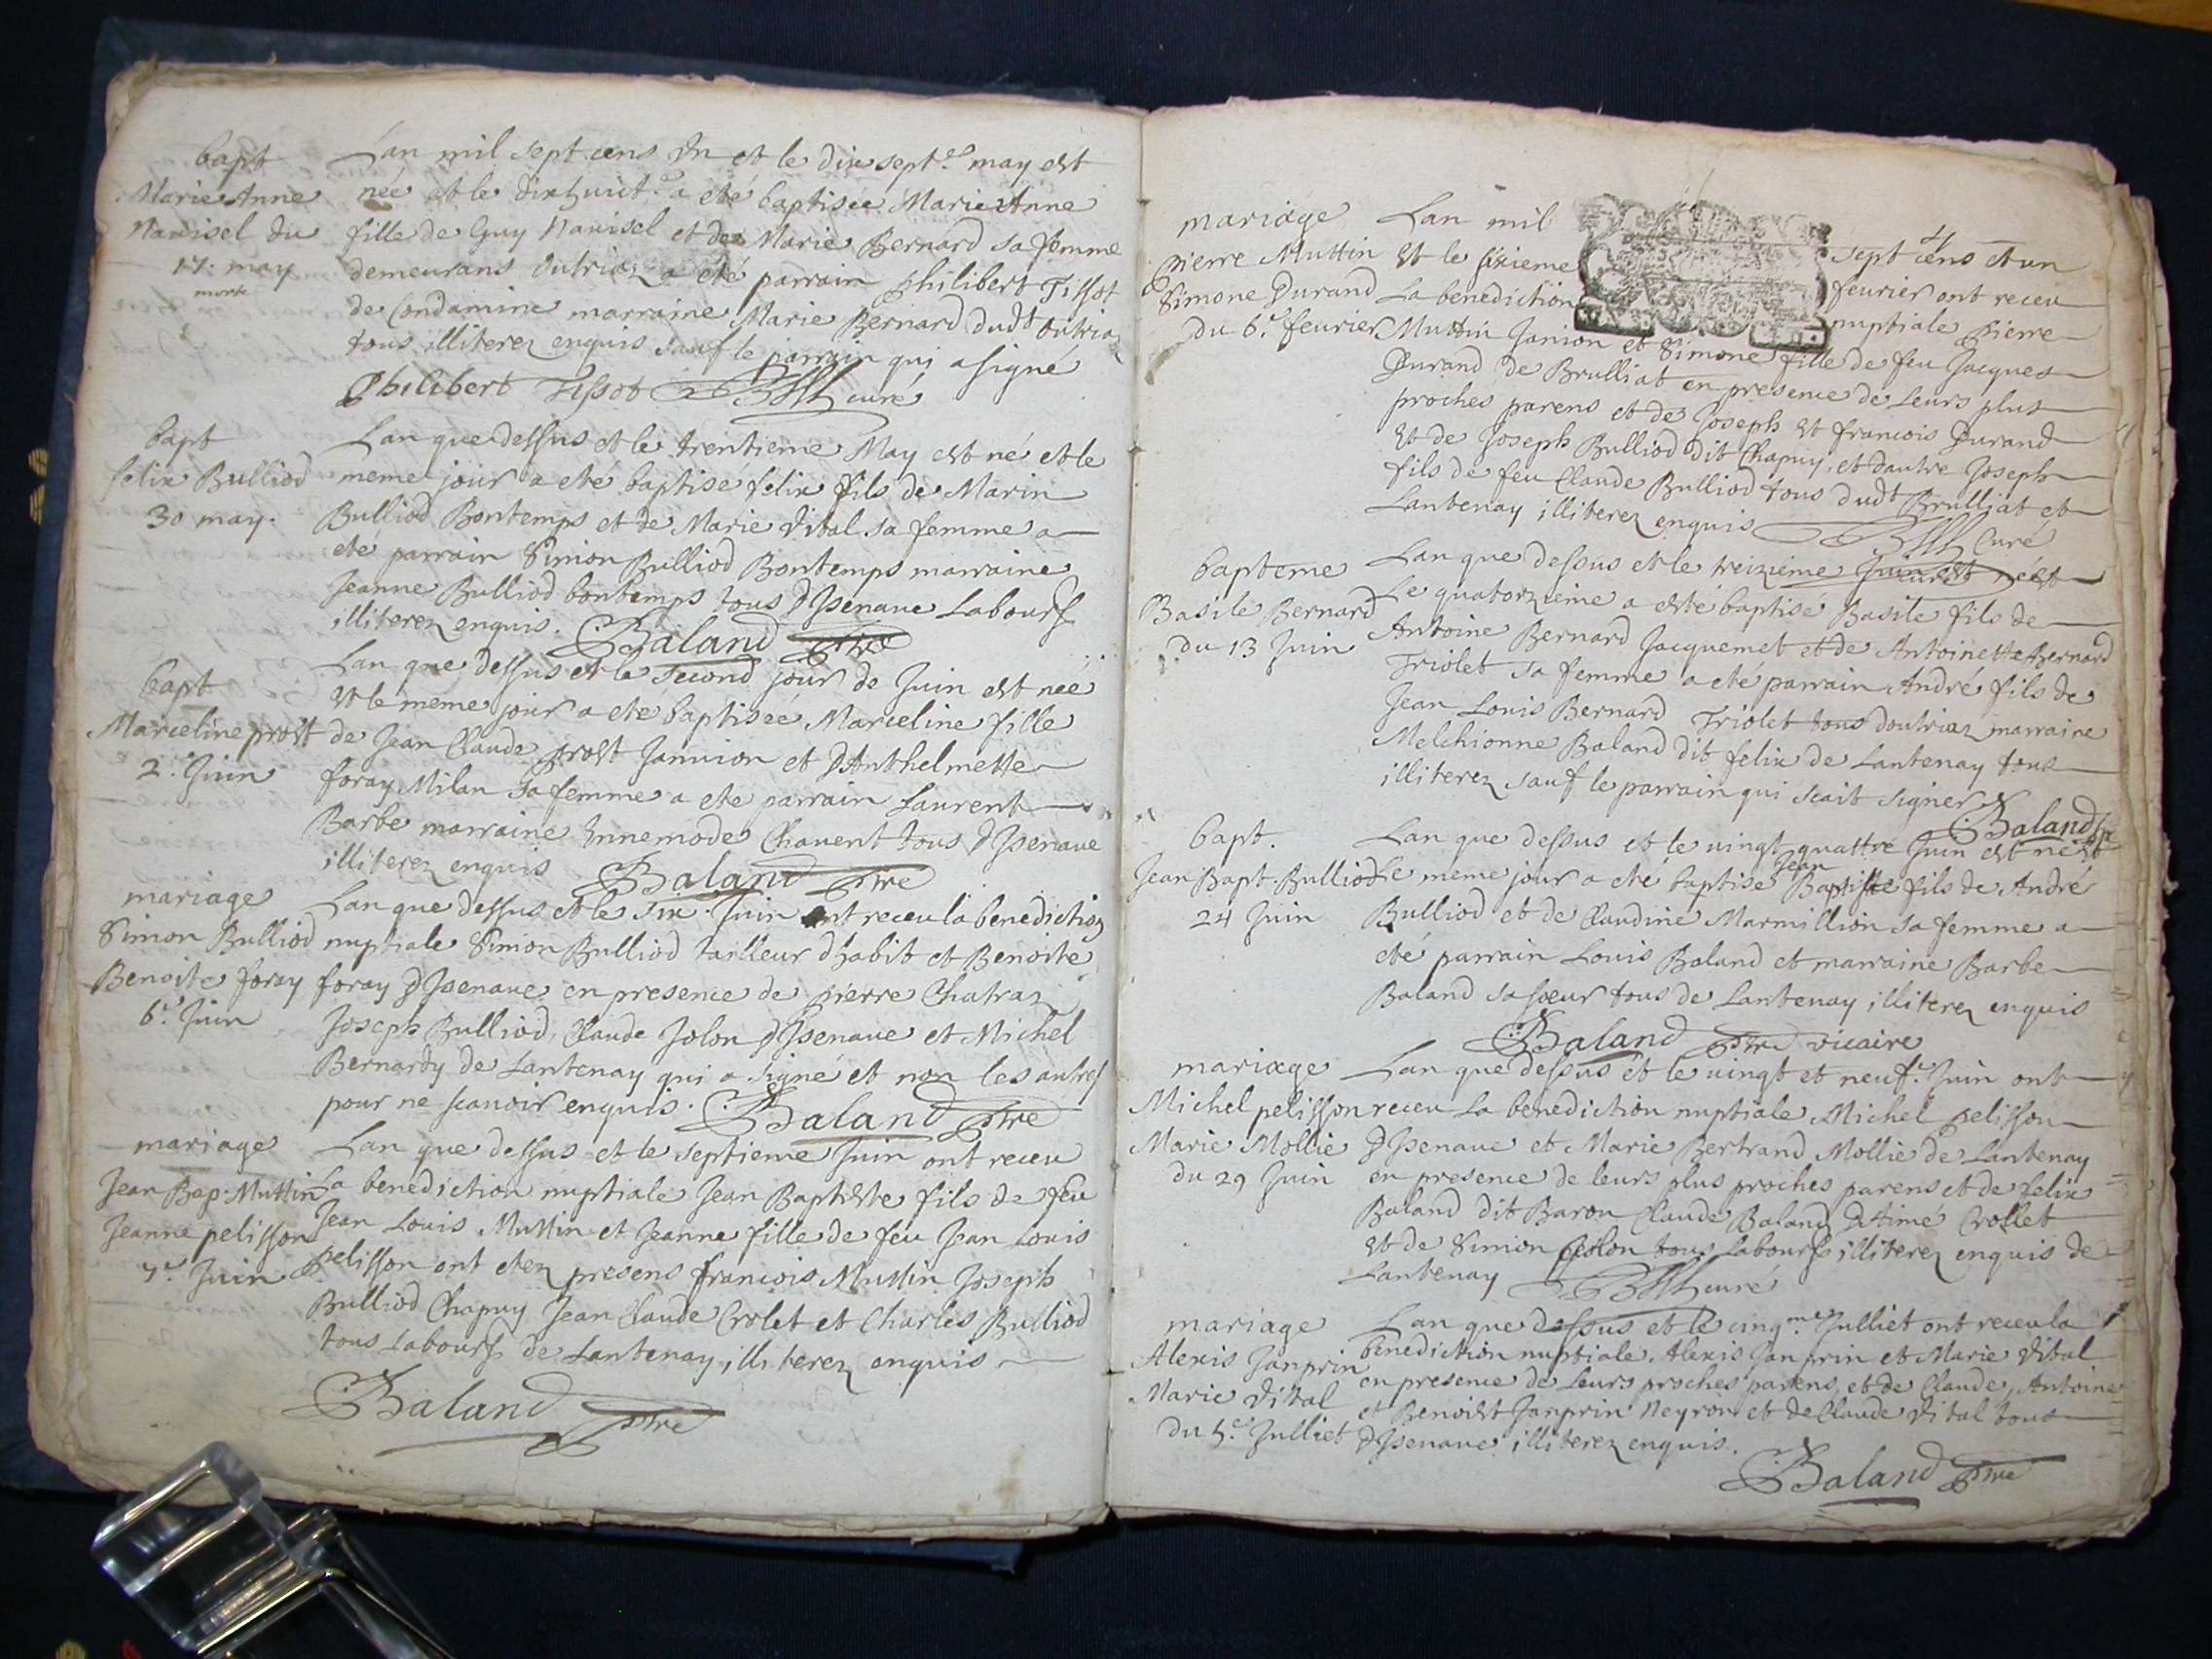 bapt
Marie Anne
Nauisel du
17. may
morte
Lan mil sept cens un et le dix sept.e may est
née et le dixhuict.e a eté baptisée Marie Anne
fille de Guy Nauisel et de Marie Bernard sa femme
demeurans Outriaz a eté parrain philibert Tissot
de Condamine marraine Marie Bernard dudt Outriaz
tous illiterez enquis sauf le parrain qui a signé
Philibert Tissot curé
bapt
felix Bulliod
30 may.
Lan que dessus et le trentieme May est né et le
meme jour a eté baptisé felix fils de Marin
Bulliod Bontemps et de Marie Vital sa femme a
eté parrain Simon Bulliod Bontemps marraine
Jeanne Bulliod bontemps tous d'Isenaue Labours
illiterez enquis. Baland ptre
bapt
Marceline prost
2. Juin
Lan que dessus et le second jour de Juin est née
et le meme jour a eté baptisée Marceline fille
de Jean Claude prost Januion et d'Anthelmette
foray Milan sa femme a ete parrain Laurent
Barbe marraine Ennemode Chauent tous d'Isenaue
illiterez enquis Baland ptre
mariage
Simon Bulliod
Benoite foray
6.e Juin
Lan que dessus et le six Juin ont receu la benediction
nuptiale Simon Bulliod tailleur d'habit et Benoite
foray d'Isenaue en presence de pierre Chatraz
Joseph Bulliod, Claude Jolon d'Isenaue et Michel
Bernardy de Lantenay qui a signé et non les autres
pour ne scauoir enquis. Baland ptre
mariage
Jean Bap. Muttin
Jeanne pelisson
7.e Juin
Lan que dessus et le septieme Juin ont receu
La benediction nuptiale Jean Baptiste fils de feu
Jean Louis Muttin et Jeanne fille de feu Jean Louis
pelisson ont etez presens francois Muttin Joseph
Bulliod Chapuy Jean Claude Crolet et Charles Bulliod
tous Labours de Lantenay, illiterez enquis
Baland ptre
mariage
Pierre Muttin
Simone Durand
du 6.e feurier
Lan mil sept cens et un
Et le sixieme feurier ont receu
La benediction nuptiale Pierre
Muttin Janion et Simone fille de feu Jacques
Durand de Brulliat en presence de Leurs plus
proches parens et de Joseph et francois Durand
et de Joseph Bulliod dit Chapuy, et dautre Joseph
fils de feu Claude Bulliod tous dudt Brulliat et
Lantenay illiterez enquis Curé
bapteme
Basile Bernard
du 13 Juin
Lan que dessus et le treizieme Juin est né et
Le quatorzieme a esté baptisé Basile fils de
Antoine Bernard Jacquemet et de Antoinette Bernard
Triolet sa femme a eté parrain André fils de
Jean Louis Bernard Triolet tous doutriaz marraine
Melchionne Baland dit felix de Lantenay tous
illiterez sauf le parrain qui scait signer Baland
bapt.
Jean Bapt. Bulliod
24 Juin
Lan que dessus et le uingt quattre Juin est né et
Le meme jour a eté baptise Jean Baptiste fils de André
Bulliod et de Claudine Marmillion sa femme a
eté parrain Louis Baland et marraine Barbe
Baland sa soeur tous de Lantenay illiterez enquis
Baland ptre vicaire
mariage
Michel pelisson
Marie Mollie
du 29 Juin
Lan que dessus et le uingt et neuf.e Juin ont
receu La benediction nuptiale Michel pelisson
d'Isenaue et Marie Bertrand Mollie de Lantenay
en presence de leurs plus proches parens et de felix
Baland dit Baron Claude Baland d'Aimé Crollet
et de Simon Jolon tous Labours illiterez enquis de
Lantenay curé
mariage
Alexis Janprin
Marie Vital
du 5.e Julliet
Lan que dessus et le cinq.me Julliet ont receu la
benediction nuptiale. Alexis Janprin et Marie Vital
en presence de Leurs proches parens, et de Claude, Antoine
et Benoist Janprin Neyron et de Claude Vital tous
d'Isenaue illiterez enquis.
Baland ptre